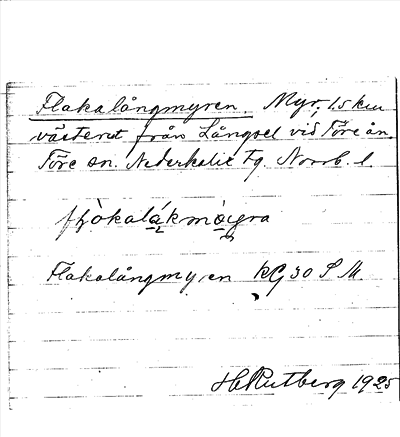 Flakalångmyren. Myr, 1.5 km
västerut från Långsel vid Töre ån.
Töre sn. Nederkalix tg. Norrb. l.
Flakalångmyren kG 30 S M.
H Rutberg 1925